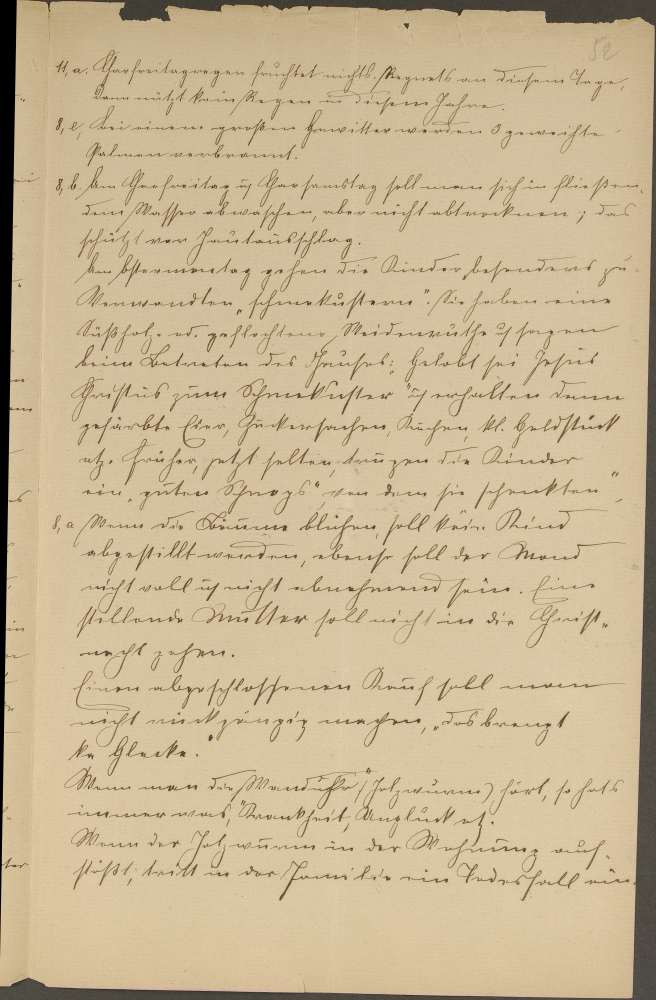 52
11, a. Charfreitagregen fruchtet nichts. Regnets an diesem Tage,
dann nützt kein Regen in diesem Jahre.
8, e, Bei einem großen Gewitter werden 3 geweihte
Palmen verbrannt.
8, b. Am Charfreitag u Charsamstag soll man sich in fließen-
dem Wasser abwaschen, aber nicht abtrocknen; das
schützt vor Hautausschlag.
Am Ostermontag gehen die Kinder besonders zu
Verwandten „schmekustern“. Sie haben eine
Süßholz- od. geflochtene Weidenruthe u sagen
beim Betreten des Hauses: Gelobt sei Jesus
Christus zum Schmekuster“ u erhalten dann
gefärbte Eier, Zuckersachen, Kuchen, kl. Geldstück
etz. Früher, jetzt selten, trugen die Kinder
ein „guten Schnaps“ von dem sie schenkten“,
8, a Wenn die Bäume blühen, soll kein Kind
abgestillt werden, ebenso soll der Mond
nicht voll u nicht abnehmend sein. Eine
stillende Mutter soll nicht in die Christ-
nacht gehen.
Einen abgeschlossenen Kauf soll man
nicht rückgängig machen, „das brengt
ke Glecke.“
Wenn man die „Wanduhr“ (Holzwurm) hört, so hats
immer was, Krankheit, Unglück etz.
Wenn der Holzwurm in der Wohnung auf-
stößt, tritt in der Familie ein Todesfall ein.